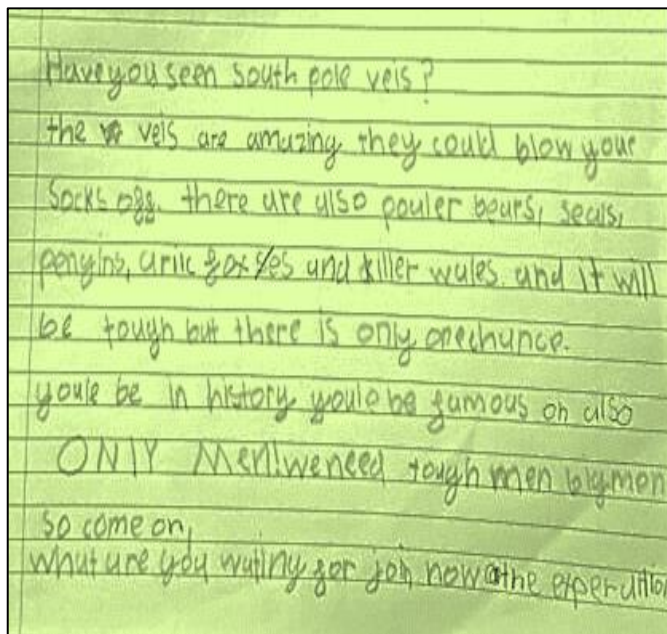 Have you seen south pole veis?
the veis are amazing they could blow your
Socks off. there are also pouler bears, seals,
pengins, artic foxses and killer wales. and it will
be tough but there is only onechance.
youle be in history youle be famous oh also
ONlY Men!weneed tough men bigmen
so come on,
what are you wating for join now @the experdition